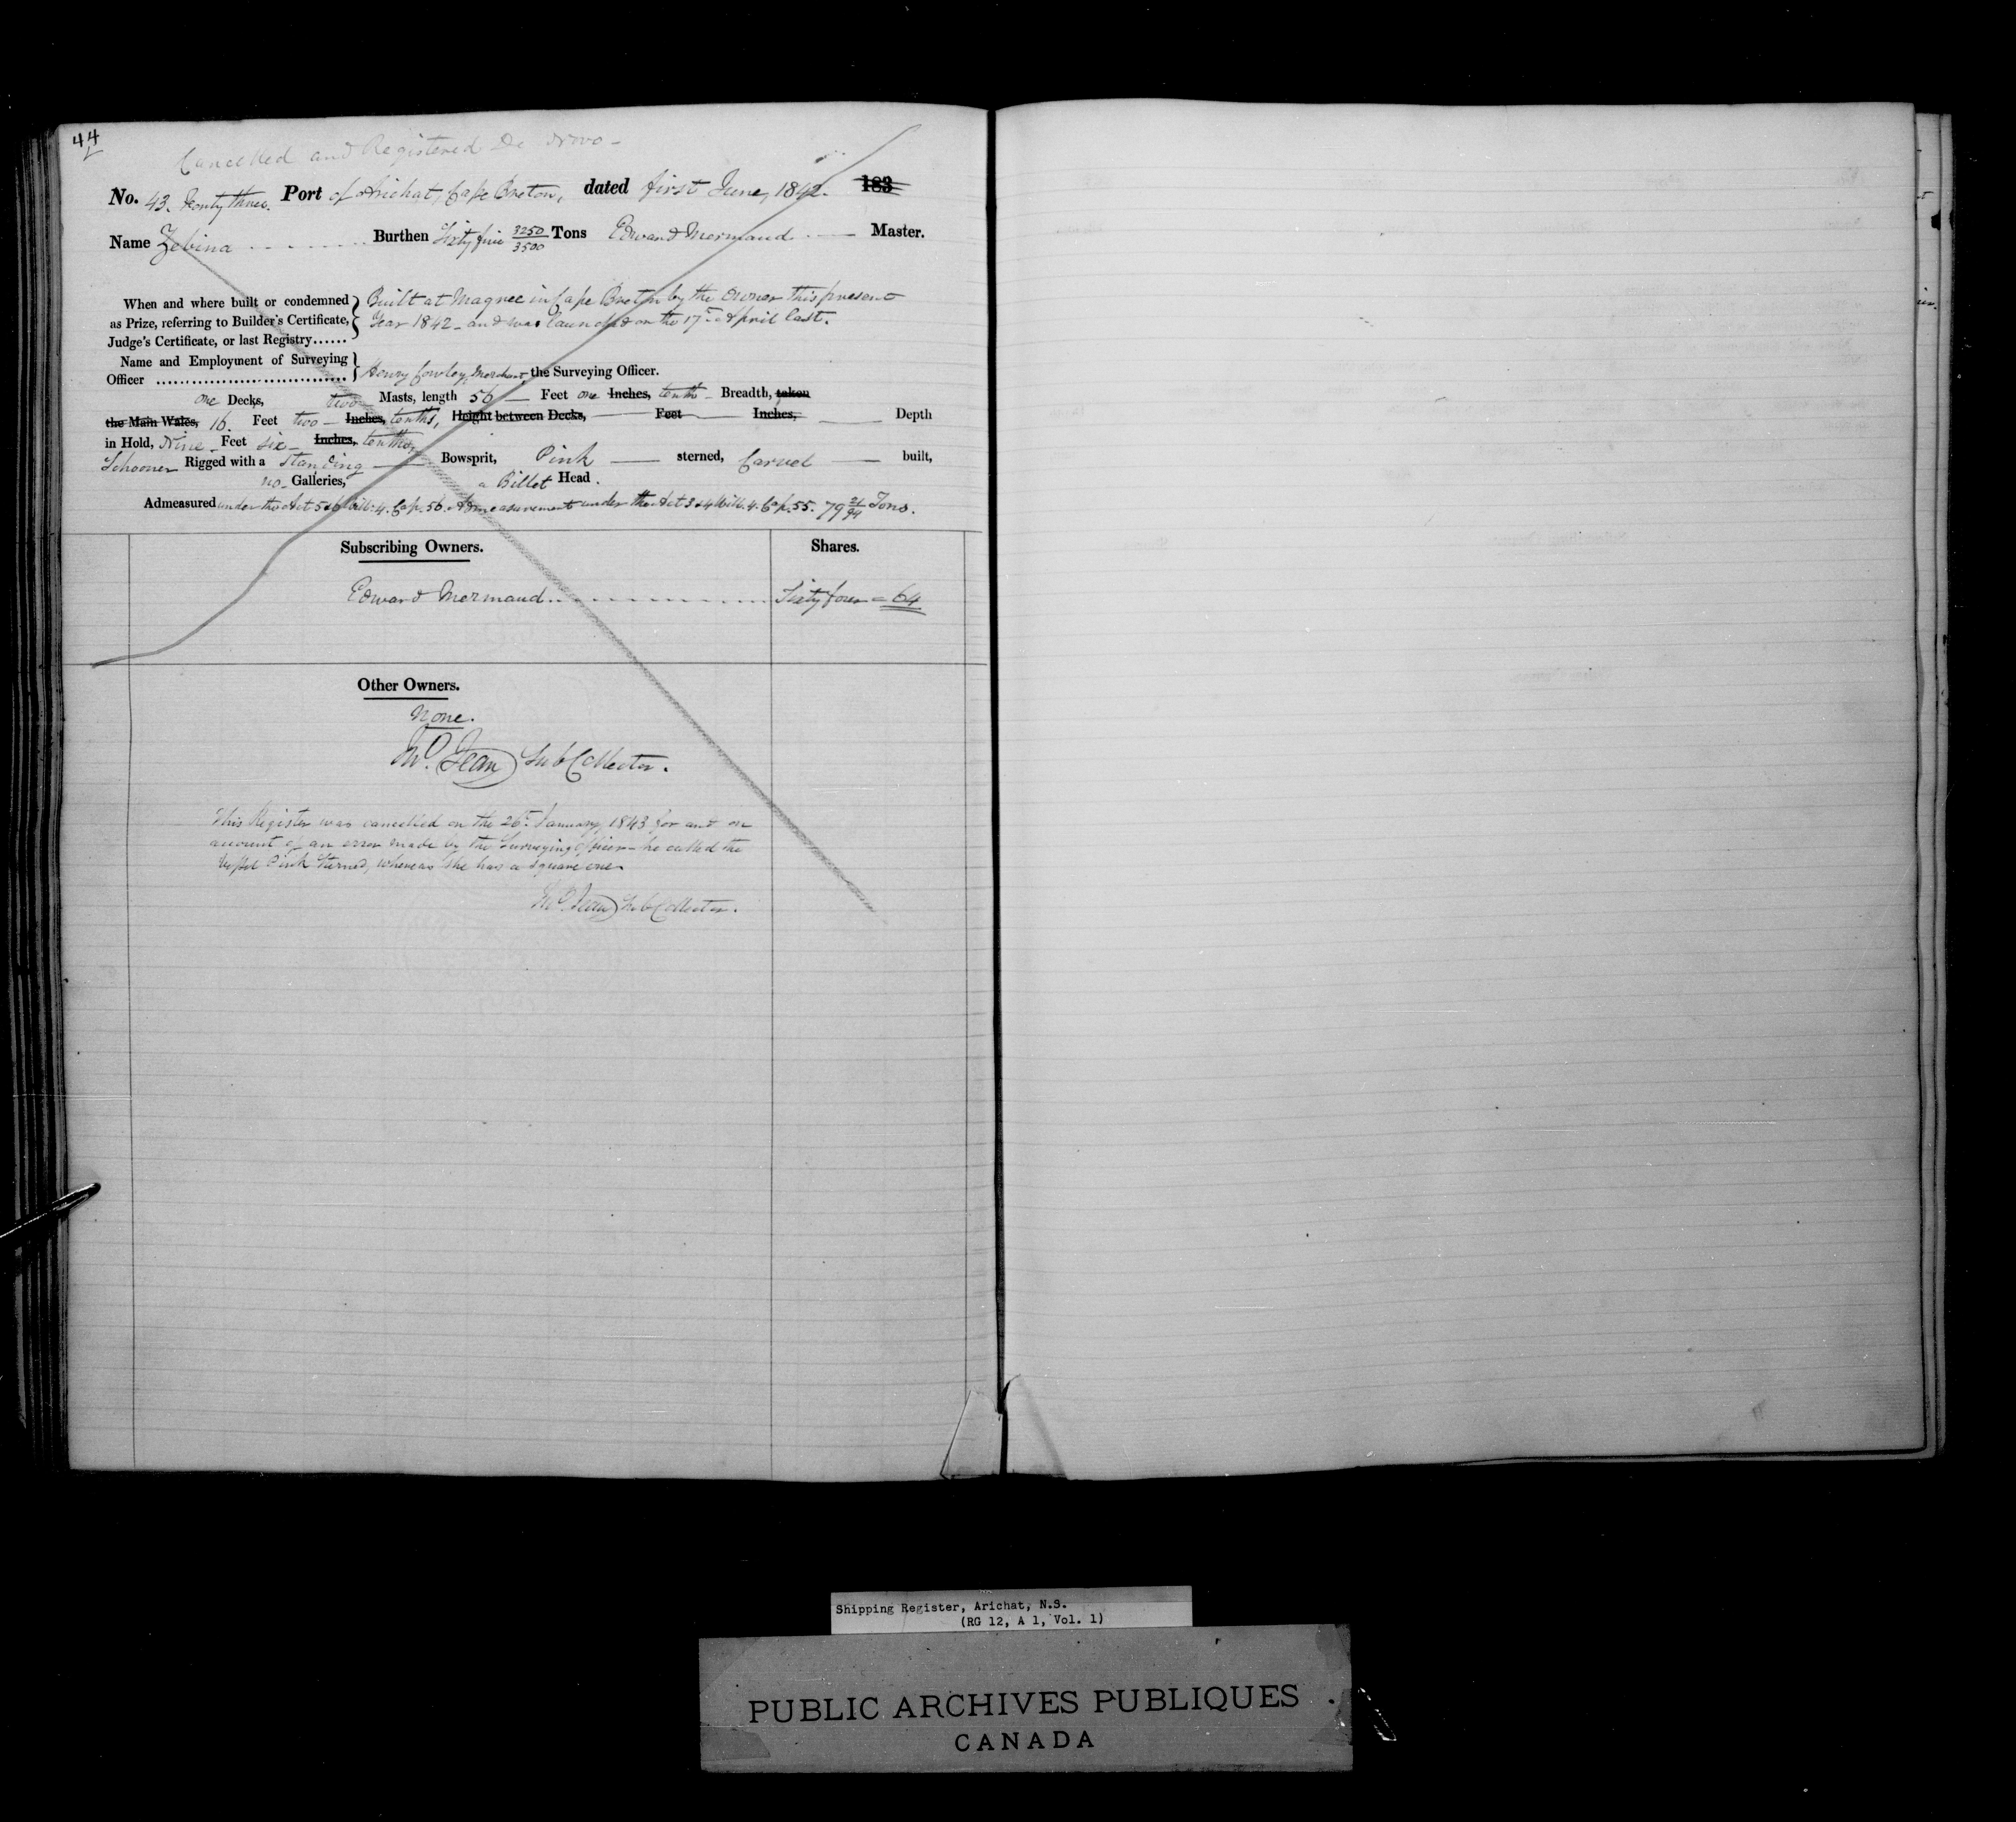 44
Cancelled and Registered De Novo -
No. 43. Forty three. Port of Arichat, Cape Breton, dated first June, 1842. 183
Name Zebina Burthen Sixty five 3250/3500 Tons Edward Mermaud Master.
When and where built or condemned } Built at Magree in Cape Breton by the Owner this present
as Prize, referring to Builder's Certificate, Year 1842 - and was launched on the 17th April last.
Judge's Certificate, or last Registry......
Name and Employment of Surveying }
Officer ................................ Henry Fowley, Merchant, the Surveying Officer.
one Decks, two Masts, length 56 Feet one Inches, tenth - Breadth, taken
the Main Wales, 16. Feet two - Inches, tenths, Height between Decks, Feet Inches, Depth
in Hold, Nine - Feet six - Inches, tenths,
Schooner Rigged with a Standing Bowsprit, Pink sterned, Carvel built,
no - Galleries, a Billet Head.
Admeasured under the Act 5 & 6 Will. 4. Cap. 56. Admeasurement under the Act 3 & 4 Will. 4. Cap. 55. 79 21/94 Tons.
Subscribing Owners. Shares.
Edward Mermaud Sixty four = 64
Other Owners.
None.
Jno. Jean Sub Collector.
This Register was cancelled on the 26th January 1843 for and on
account of an error made by the Surveying Officer - he called the
Vessel Pink Sterned, whereas she has a Square one -
Jno. Jean Sub Collector.
Shipping Register, Arichat, N.S.
(RG 12, A 1, Vol. 1)
PUBLIC ARCHIVES PUBLIQUES
CANADA